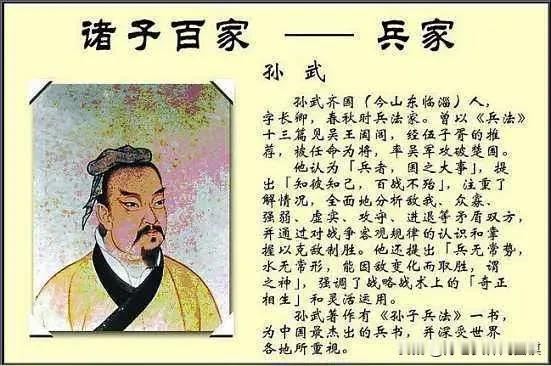 诸子百家 —— 兵家
孙 武
孙武齐国(今山东临淄)人,
字长卿,春秋时兵法家。曾以《兵法》
十三篇见吴王阖闾,经伍子胥的推
荐,被任命为将,率吴军攻破楚国。
他认为「兵者,国之大事」,提
出「知彼知己,百战不殆」,注重了
解情况,全面地分析敌我、众寡、
强弱、虚实、攻守、进退等矛盾双方,
并通过对战争客观规律的认识和掌
握以克敌制胜。他还提出「兵无常势,
水无常形,能因敌变化而取胜,谓
之神」,强调了战略战术上的「奇正
相生」和灵活运用。
孙武著作有《孙子兵法》一书,
为中国最杰出的兵书,并深受世界
各地所重视。